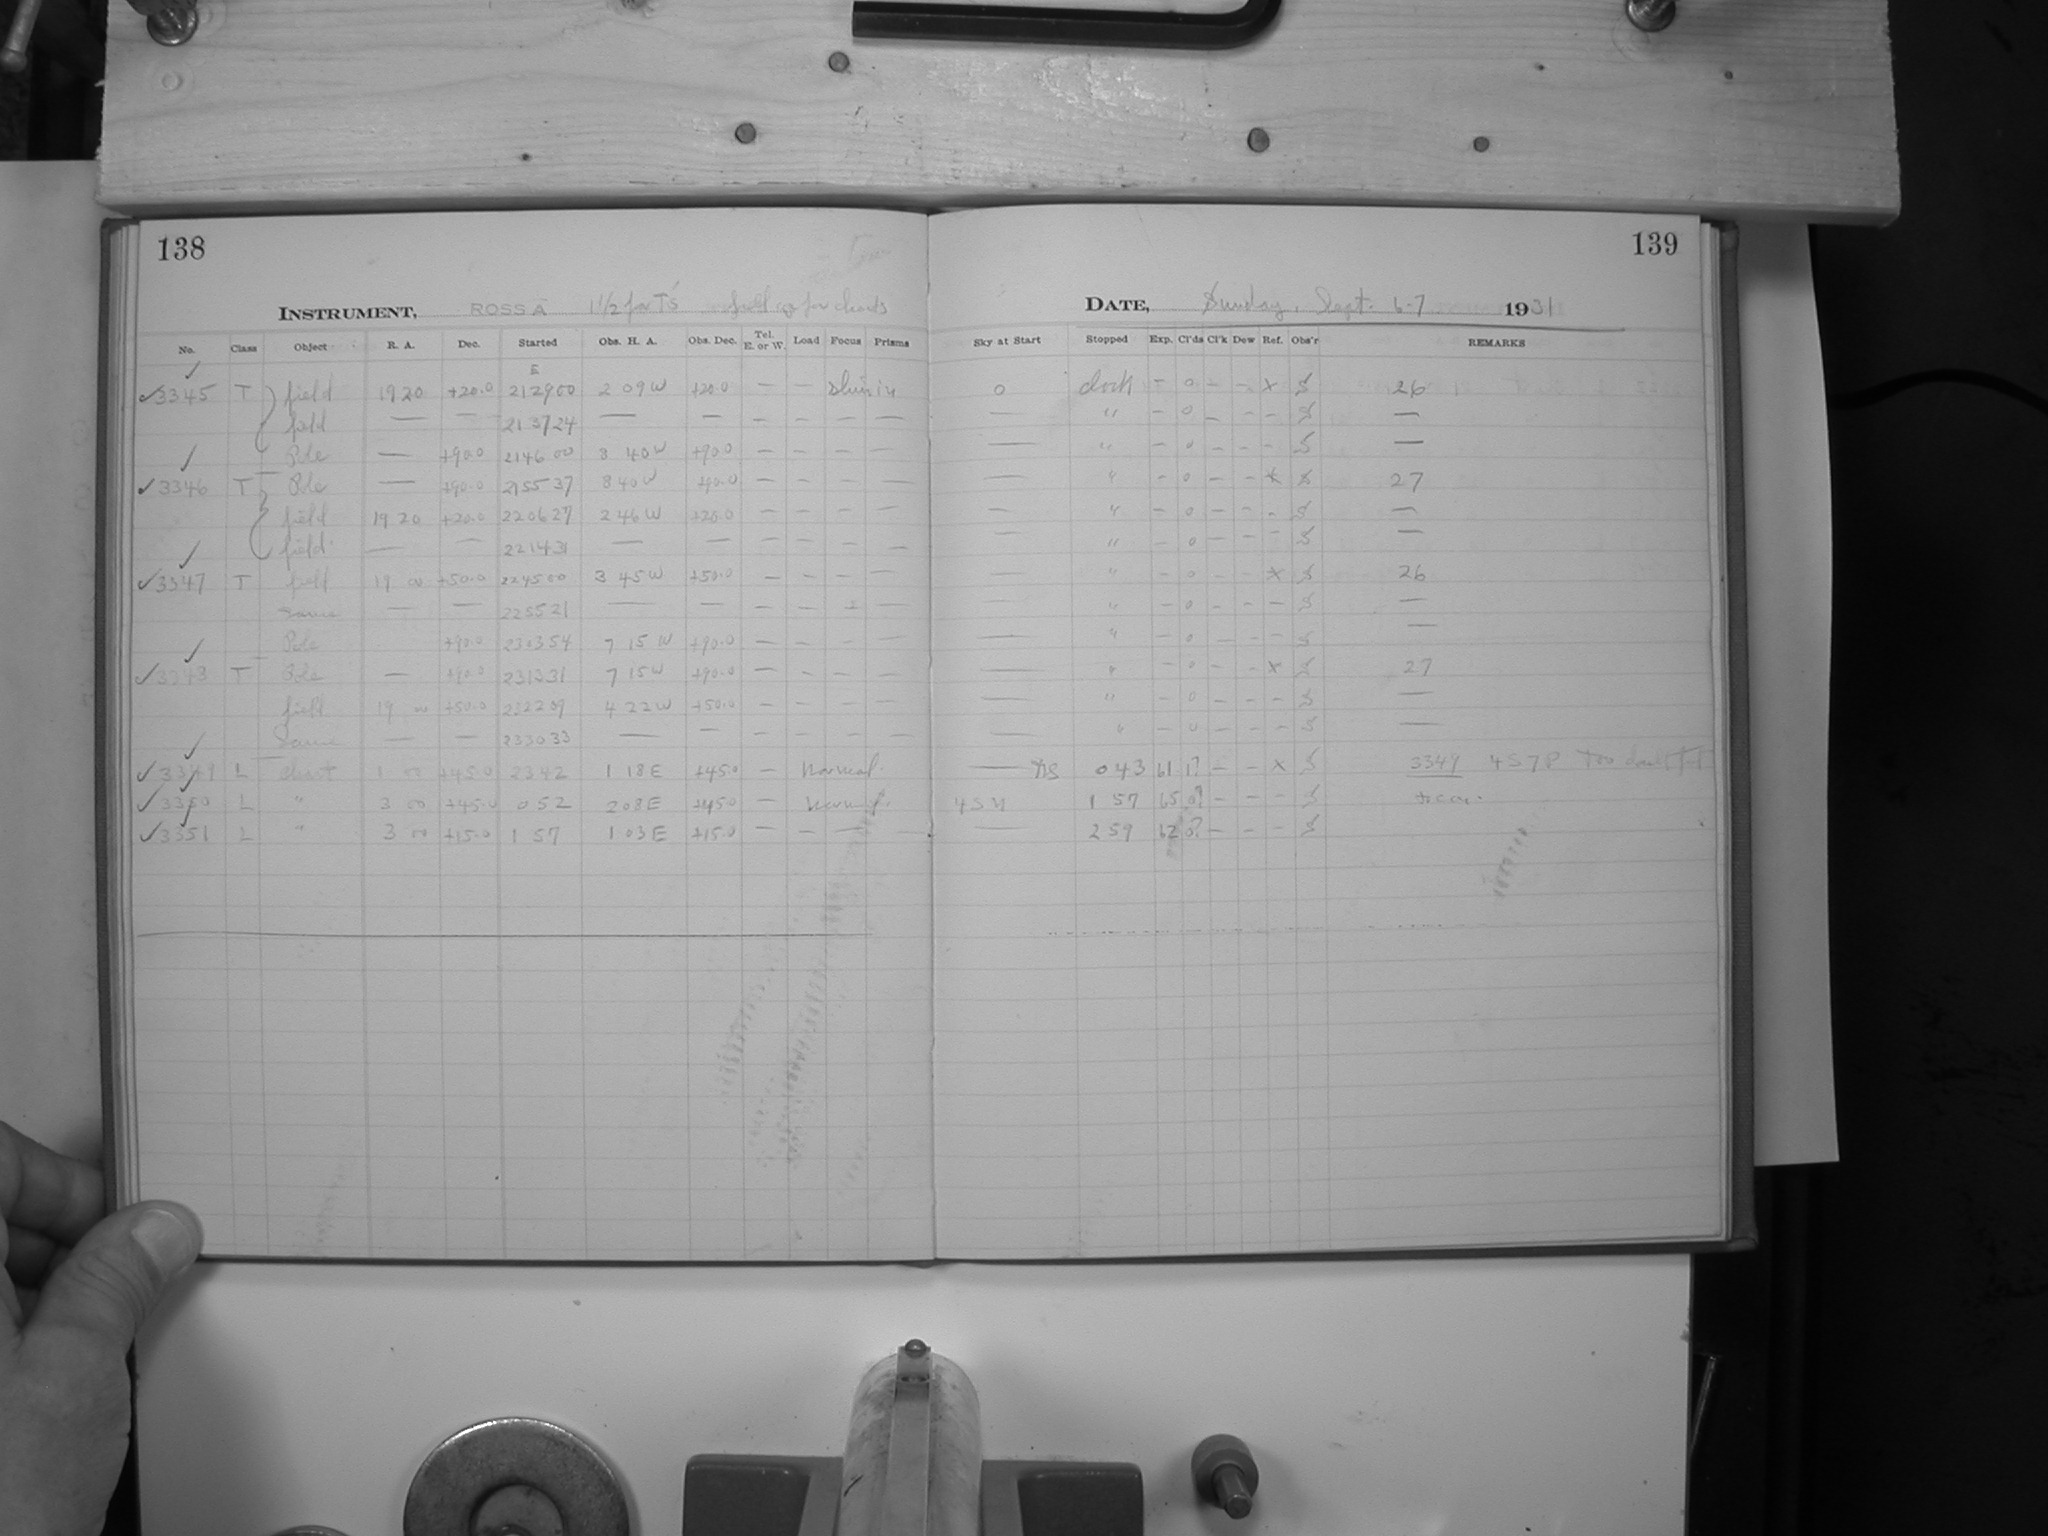 138
INSTRUMENT, ROSS A 1 1/2 for T's full ap for charts
No. Class Object R. A. Dec. Started Obs. H. A. Obs. Dec. Tel. E. or W. Load Focus Prisms
E
3345 T field 19 20 +20.0 212900 2 09 W +20.0 — — shim in
field — — 213724 — — — — — —
Pole — +90.0 214600 8 40 W +90.0 — — — —
3346 T Pole — +90.0 215537 8 40 W +90.0 — — — —
field 19 20 +20.0 220627 2 46 W +20.0 — — — —
field — — 221431 — — — — — —
3347 T field 19 00 +50.0 224500 3 45 W +50.0 — — — —
Same — — 225521 — — — — — —
Pole +90.0 230354 7 15 W +90.0 — — — —
3348 T Pole — +90.0 231331 7 15 W +90.0 — — — —
field 19 00 +50.0 232209 4 22 W +50.0 — — — —
Same — — 233033 — — — — — —
3349 L chart 1 00 +45.0 2342 1 18 E +45.0 — normal.
3350 L " 3 00 +45.0 0 52 2 08 E +45.0 —
3351 L " 3 00 +15.0 1 57 1 03 E +15.0 — — —
139
DATE, Sunday, Sept. 6-7 1931
Sky at Start Stopped Exp. Cl'ds Cl'k Dew Ref. Obs'r REMARKS
0 clock — 0 — — x S 26
— " — 0 — — — S —
— " — 0 — — — S —
— " — 0 — — x S 27
— " — 0 — — — S —
— " — 0 — — — S —
— " — 0 — — x S 26
— " — 0 — — — S —
— " — 0 — — — S —
— " — 0 — — x S 27
— " — 0 — — — S —
— " — 0 — — — S —
— 0 43 61 1? — — x S 3349 4 S 7 P Too
1 57 65 0? — — — S
— 2 59 62 0? — — — S